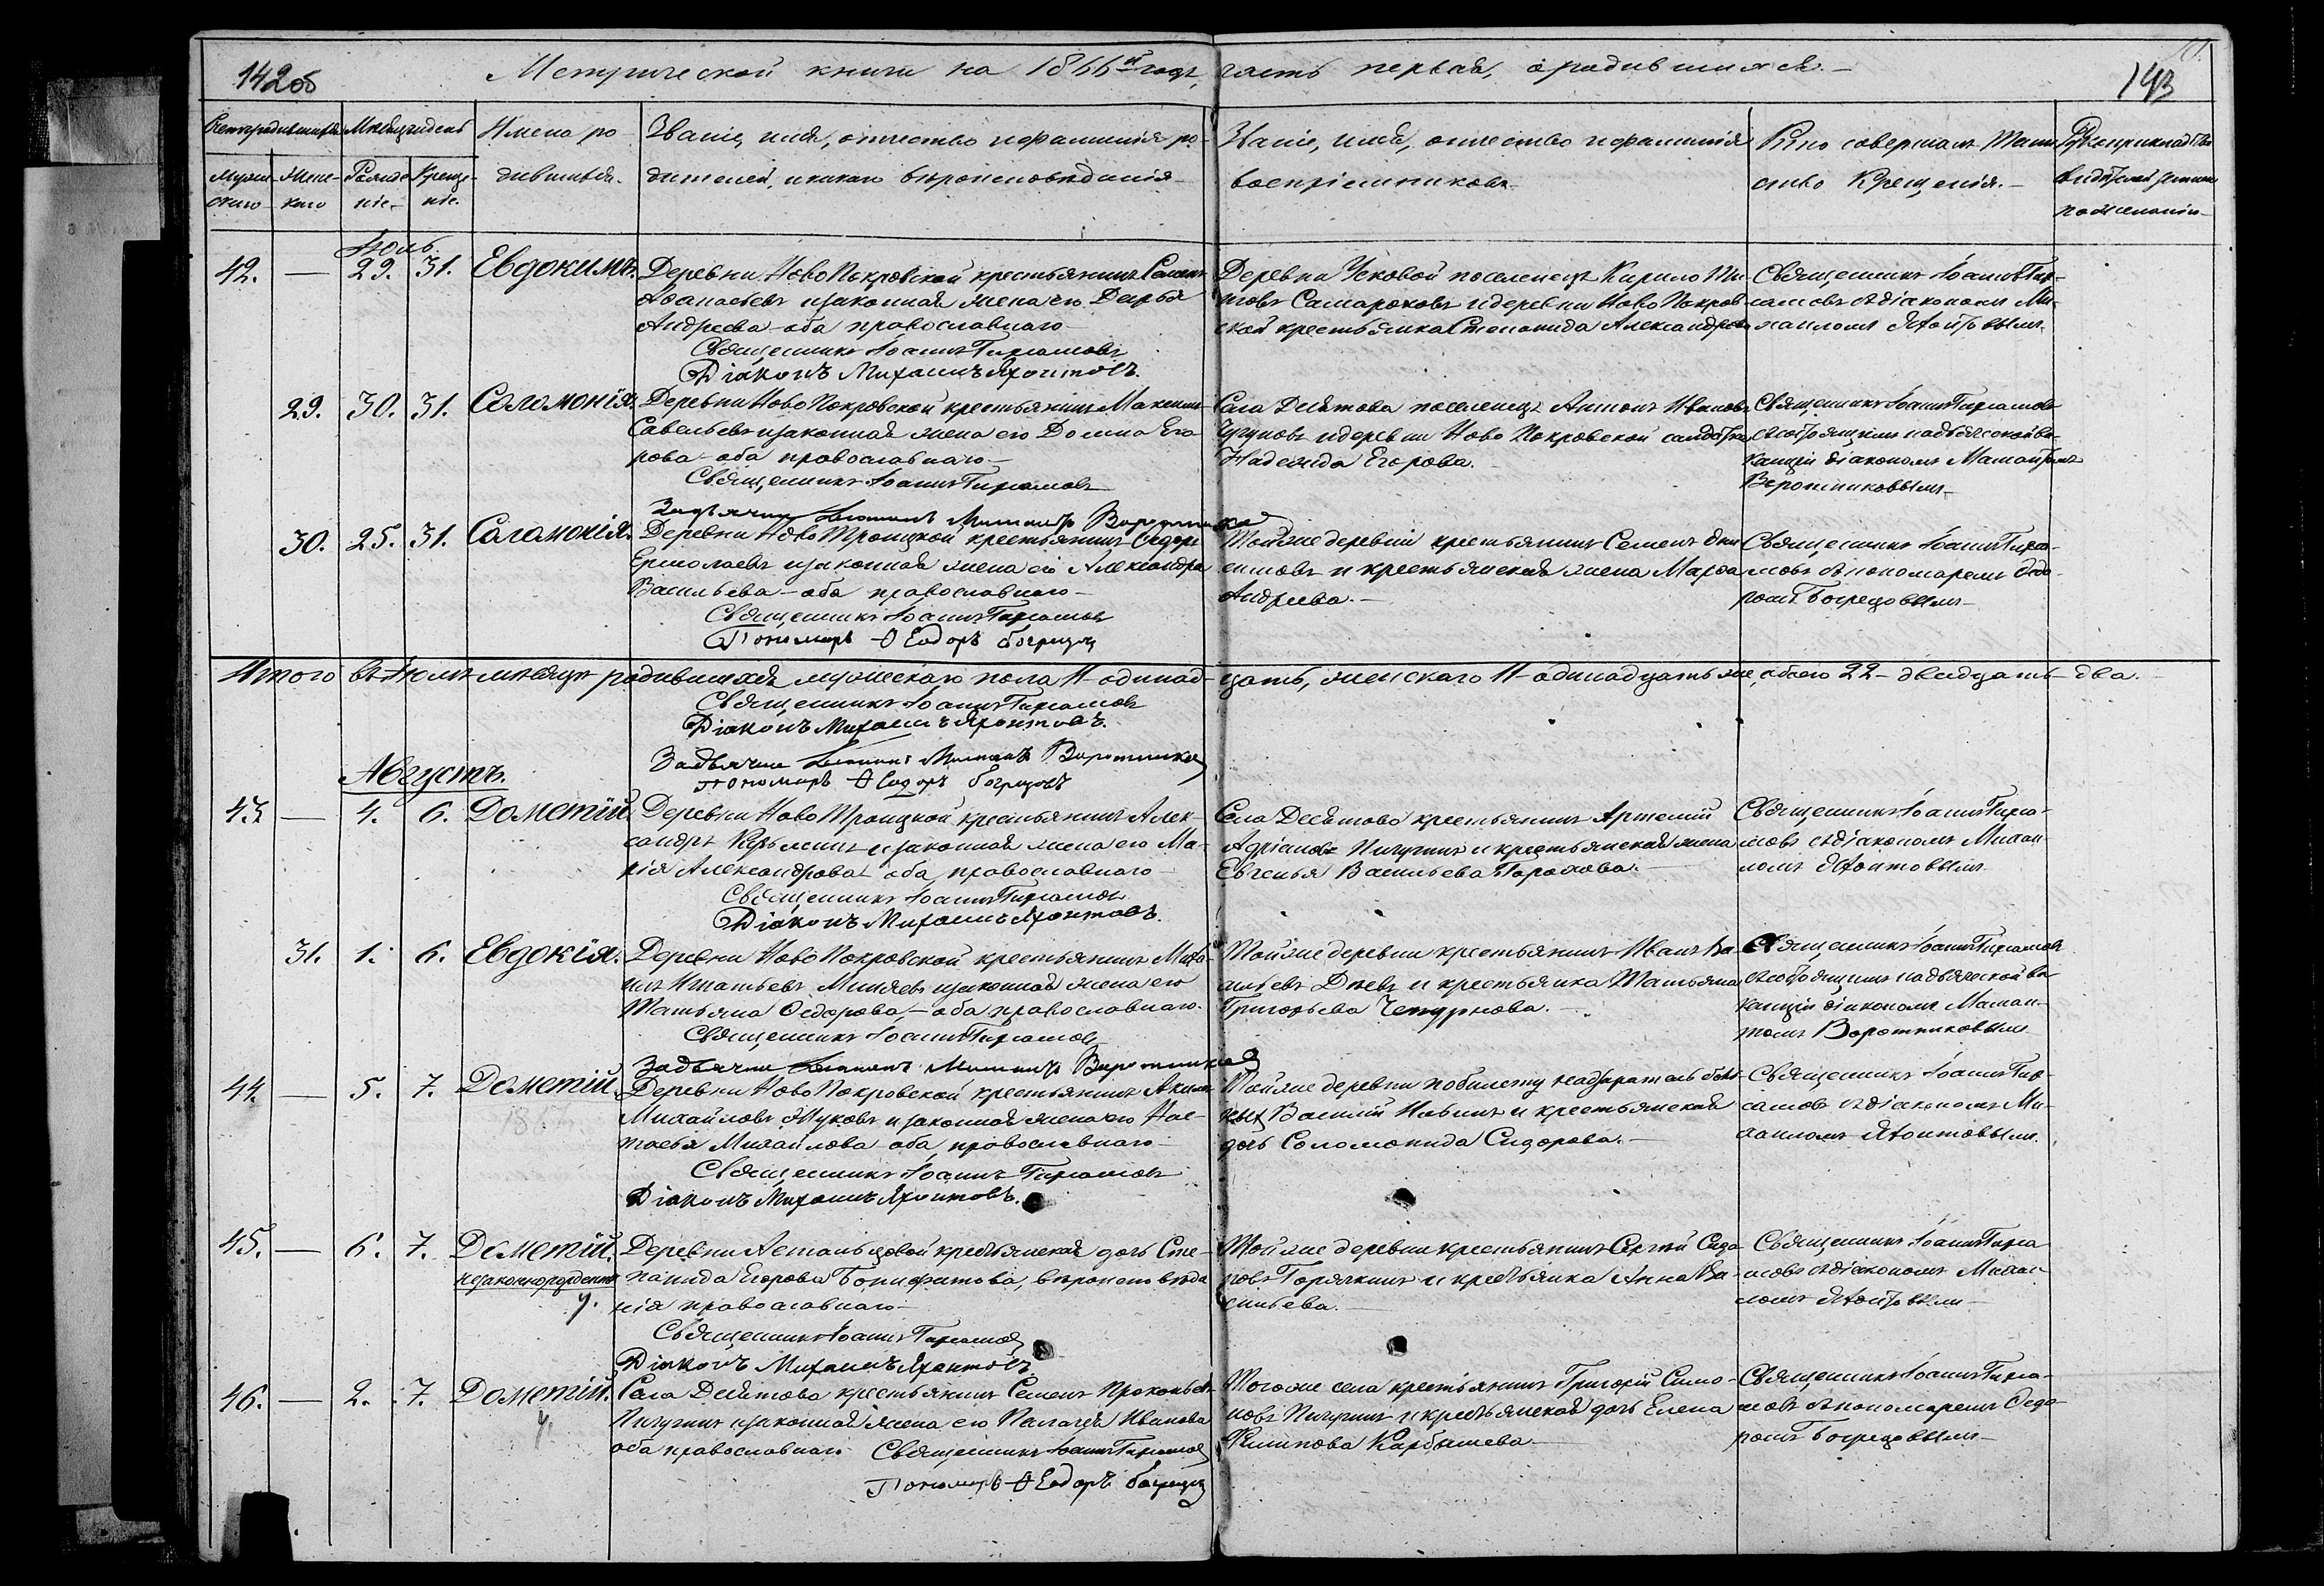 142об
Метрической книги на 1866й годъ, часть первая, о родившихся.
143
Счетъ родившихся
Мѣсяцъ и день
Имена ро-
дившихся.
Званіе, имя, отчество и фамилія ро-
дителей, и какого вѣроисповѣданія
Званіе, имя, отчество и фамилія
воспріемниковъ.
Кто совершалъ Таин-
ство Крещенія.
Рукоприкладство
свидѣтелей записи
по желанію
Мужескаго
Женскаго
Рожденіе
Крещеніе.
Іюль.
42. — 29. 31. Евдокимъ.
Деревни Ново Покровской крестьянинъ Семенъ
Аѳанасьевъ и законная жена его Дарья
Андреева оба православнаго
Священникъ Іоаннъ
Діаконъ Михаилъ Яхонтовъ.
Деревни Усковой поселенецъ Кирило Ти-
товъ Самароковъ и деревни Ново Покров-
ской крестьянка Степанида Александрова
Священникъ Іоаннъ
съ діакономъ Ми-
хаиломъ Яхонтовымъ.
29. 30. 31. Соломонія.
Деревни Ново Покровской крестьянинъ Максимъ
Савельевъ и законная жена его Домна Его-
рова оба православнаго
Священникъ Іоаннъ
Села Десятова поселенецъ Антонъ Ивановъ
Чугуновъ и деревни Ново Покровской солдатка
Надежда Егорова.
Священникъ Іоаннъ
состоящимъ на дьяческой ва-
канціи діакономъ
Воротниковымъ
30. 25. 31. Саламонія.
Деревни Ново Троицкой крестьянинъ Ѳедоръ
Ермолаевъ и законная жена его Александра
Васильева оба православнаго
Священникъ Іоаннъ
Пономарь Ѳеодоръ
Той же деревни крестьянинъ Семенъ Они-
симовъ и крестьянская жена Марѳа
Андреева.
Священникъ Іоаннъ
съ пономаремъ Ѳедо-
ромъ
Итого въ Іюлѣ мѣсяцѣ родившихся мужескаго пола 11 одинад-
цать, женскаго 11 одинадцать же, обоего 22 двадцать два.
Священникъ Іоаннъ
Діаконъ Михаилъ Яхонтовъ.
Пономарь Ѳеодоръ
Августъ.
43. — 4. 6. Дометій
Деревни Ново Троицкой крестьянинъ Алек-
сандръ Кузьминъ и законная жена его Ма-
рія Александрова оба православнаго
Священникъ Іоаннъ
Діаконъ Михаилъ Яхонтовъ.
Села Десятова крестьянинъ Артемій
Адріановъ Пичугинъ и крестьянская жена
Евгенья Васильева Горохова.
Священникъ Іоаннъ
съ діакономъ Михаи-
ломъ Яхонтовымъ
31. 1. 6. Евдокія.
Деревни Ново Покровской крестьянинъ Миха-
илъ Игнатьевъ Миняевъ и законная жена его
Татьяна Ѳедорова, оба православнаго.
Священникъ Іоаннъ
Той же деревни крестьянинъ Иванъ Ва-
сильевъ и крестьянка Татьяна
Григорьева Чепурнова.
Священникъ Іоаннъ
состоящимъ на дьяческой ва-
канціи діакономъ
Воротниковымъ
44. — 5. 7. Дометій.
Деревни Ново Покровской крестьянинъ
Михайловъ Жуковъ и законная жена его Нас-
тасья Михайлова оба православнаго
Священникъ Іоаннъ
Діаконъ Михаилъ Яхонтовъ.
Той же деревни по билету надзиратель
Василій Ильинъ и крестьянская
дочь Соломонида Сидорова.
Священникъ Іоаннъ
съ діакономъ Ми-
хаиломъ Яхонтовымъ.
45. — 6. 7. Дометій.
незаконнорожденный
у.
Деревни крестьянская дочь Сте-
панида Егорова Бонифатова, вѣроисповѣда-
нія православнаго
Священникъ Іоаннъ
Діаконъ Михаилъ Яхонтовъ
Той же деревни крестьянинъ Сергій Сидо-
ровъ Горячкинъ и крестьянка Анна Ва-
сильева.
Священникъ Іоаннъ
съ діакономъ Михаи-
ломъ Яхонтовымъ
46. — 2. 7. Дометій.
у.
Села Десятова крестьянинъ Семенъ Прокопьевъ
Пичугинъ и законная жена его Палагея Иванова
оба православнаго Священникъ Іоаннъ
Пономарь Ѳеодоръ
Того же села крестьянинъ Григорій Симо-
новъ Пичугинъ и крестьянская дочь Елена
Филипова Карбышева.
Священникъ Іоаннъ
съ пономаремъ Ѳедо-
ромъ